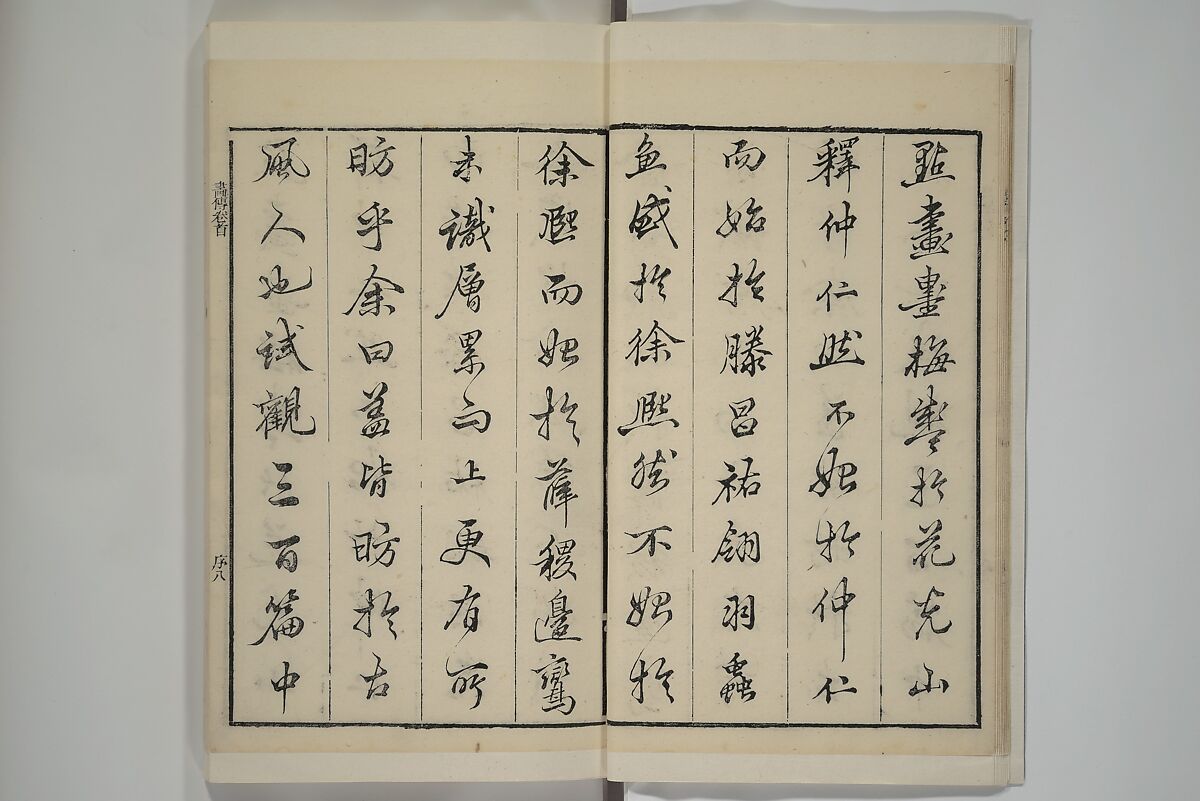 點畫墨梅盛於花光山
釋仲仁然不始於仲仁
而始於滕昌祐翎羽蟲
魚盛於徐熙然不始於
徐熙而始於薛稷邊鸞
未識層累而上更有所
昉乎余曰蓋皆昉於古
風人也試觀三百篇中
畫傳卷首
序八